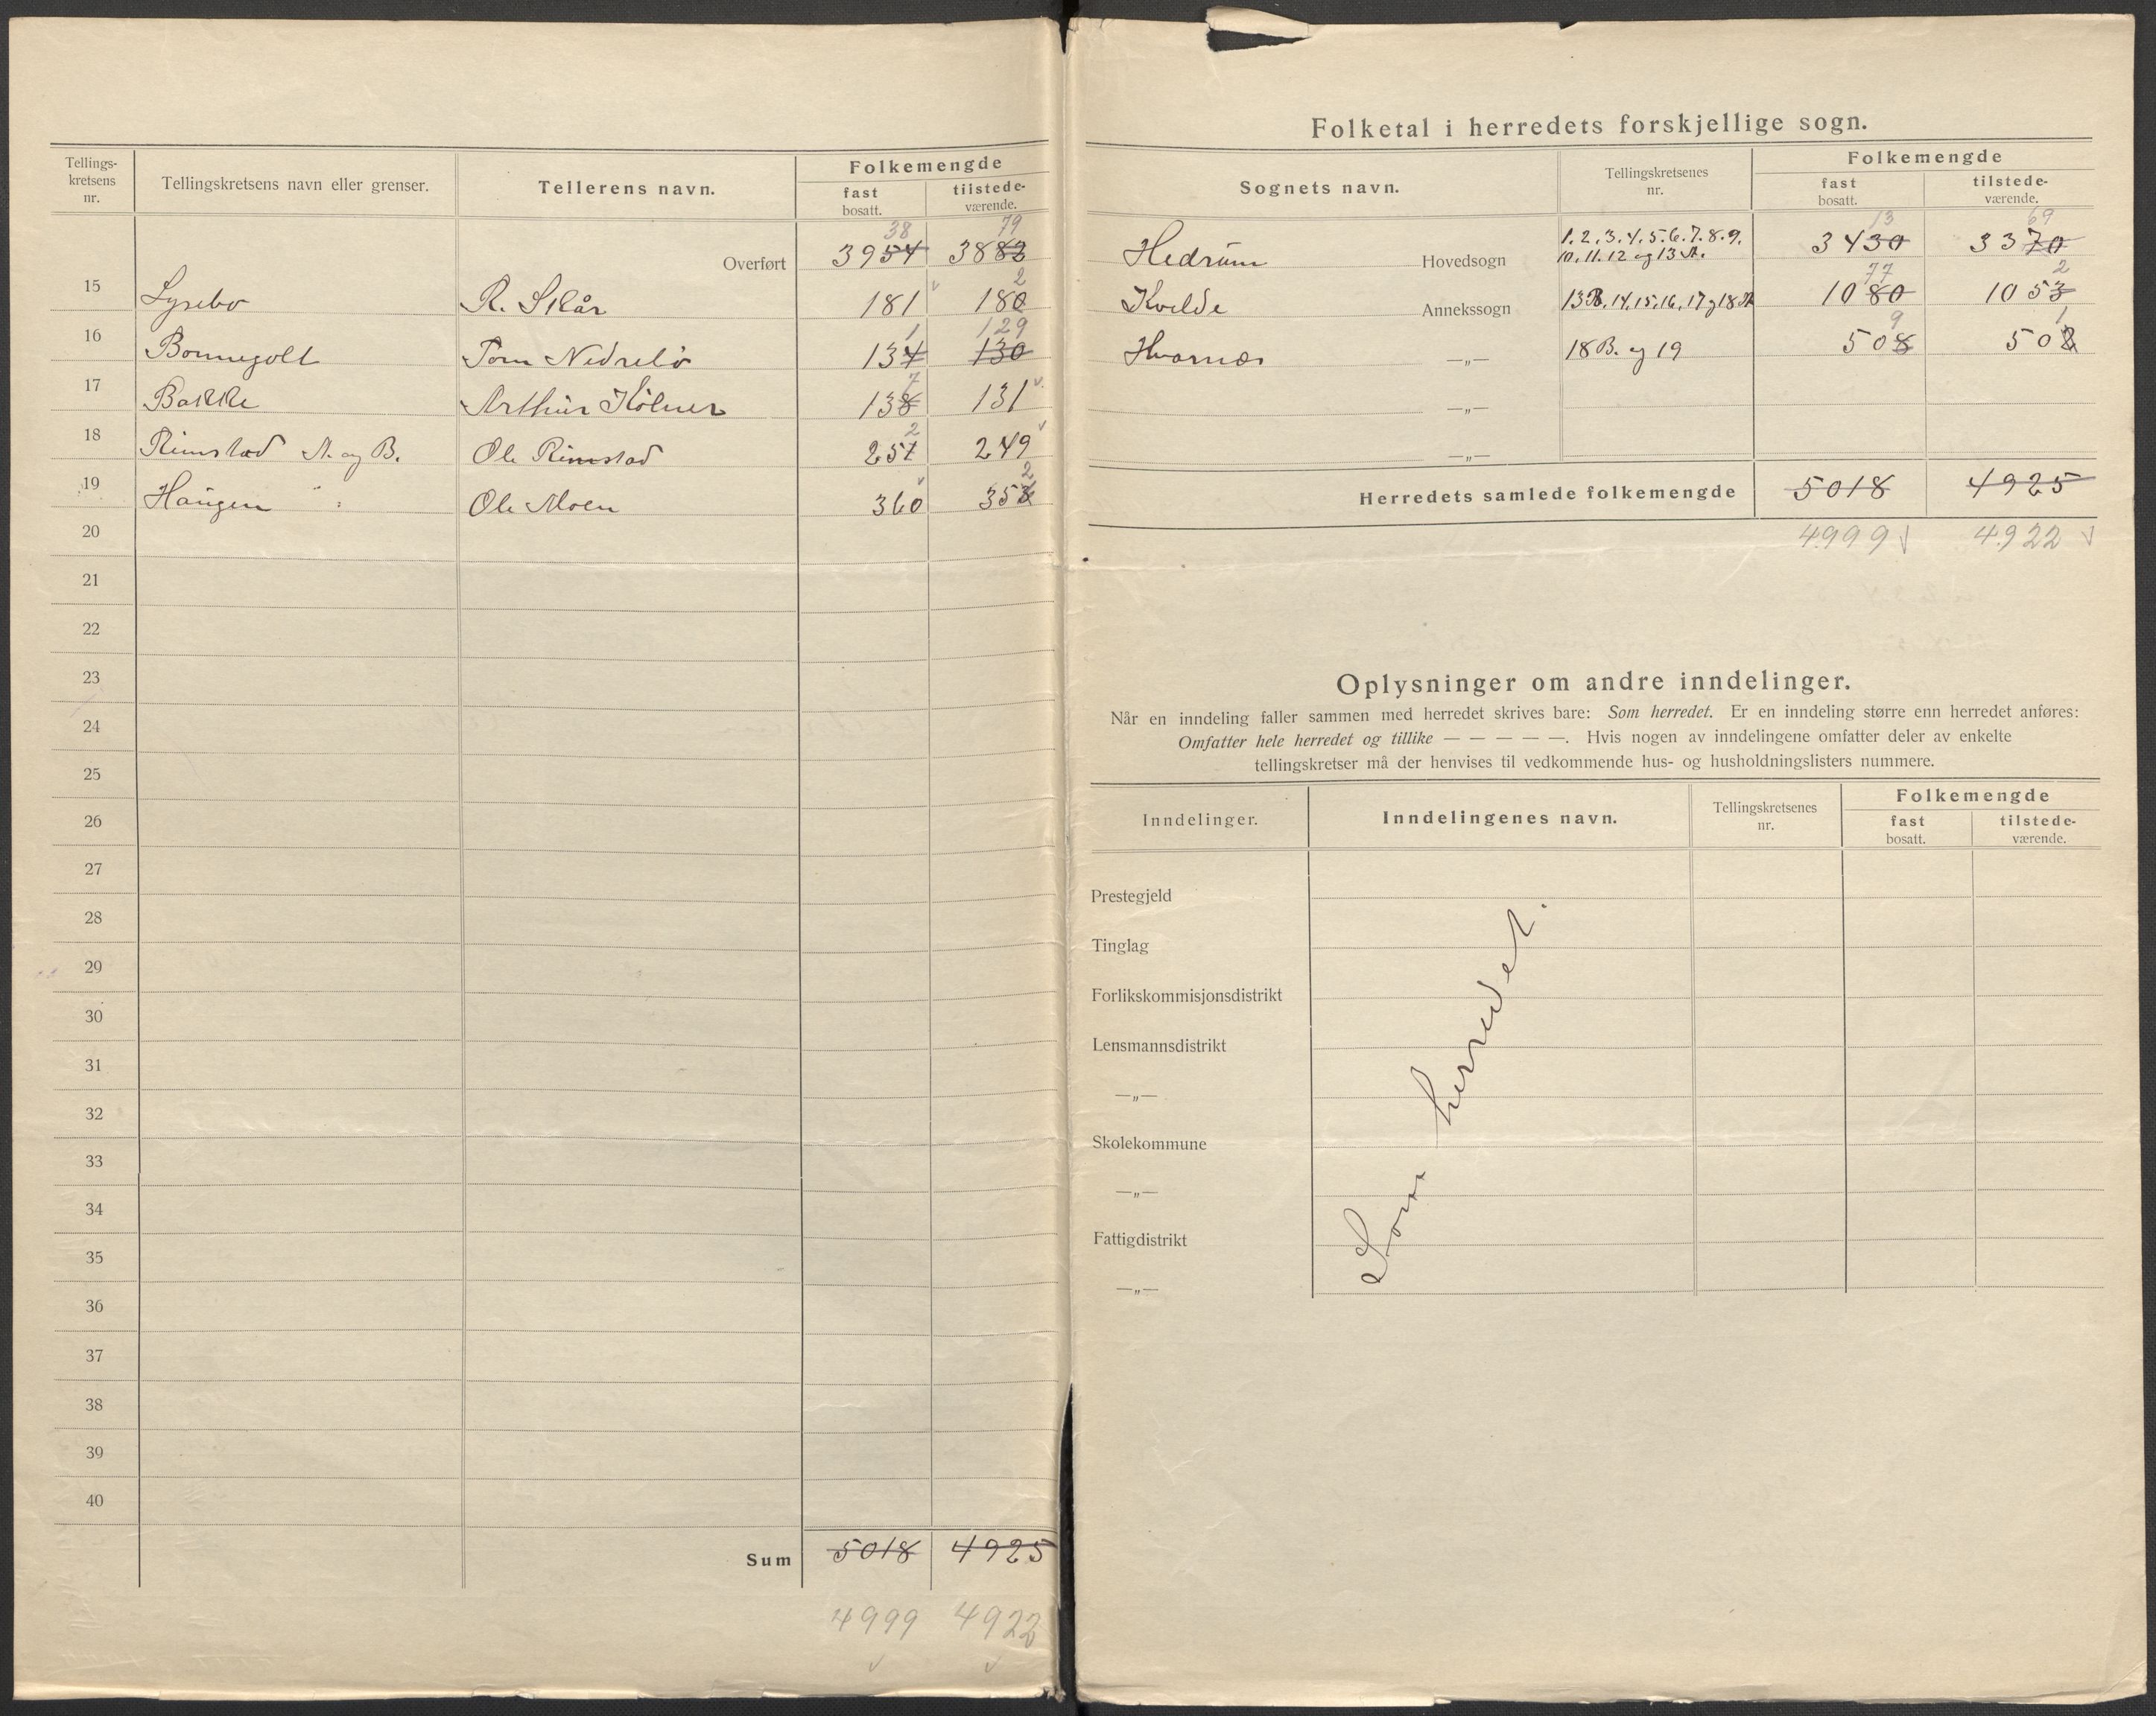 Tellings-
kretsens
nr.
Tellingskretsens navn eller grenser.
Tellerens navn.
Folkemengde
fast
bosatt.
tilstede-
værende.
38 79
Overført 3954 3882
2
15 Lysebo R. Skår 181 180
1 129
16 Bonnegolt Tom Nedrebø 134 130
7
17 Bakke Arthur Hölner 138 131
2
18 Rimstad A. og B. Ole Rimstad 257 249
2
19 Haugen Ole Moen 360 353
20
21
22
23
24
25
26
27
28
29
30
31
32
33
34
35
36
37
38
39
40
Sum 5018 4925
4999 4922
Folketal i herredets forskjellige sogn.
Sognets navn.
Tellingskretsenes
nr.
Folkemengde
fast
bosatt.
tilstede-
værende.
13 69
Hedrum Hovedsogn 1.2.3.4.5.6.7.8.9. 3430 3370
10.11.12 og 13 A.
77 2
Kvelde Annekssogn 13B.14.15.16.17 og 18 A 1080 1053
9 1
Hvarnes —„— 18 B. og 19 508 502
—„—
—„—
Herredets samlede folkemengde 5018 4925
4999 4922
Oplysninger om andre inndelinger.
Når en inndeling faller sammen med herredet skrives bare: Som herredet. Er en inndeling større enn herredet anføres:
Omfatter hele herredet og tillike — — — — —. Hvis nogen av inndelingene omfatter deler av enkelte
tellingskretser må der henvises til vedkommende hus- og husholdningslisters nummere.
Inndelinger.
Inndelingenes navn.
Tellingskretsenes
nr.
Folkemengde
fast
bosatt.
tilstede-
værende.
Prestegjeld
Tinglag
Forlikskommisjonsdistrikt
Lensmannsdistrikt
—„—
Skolekommune
—„—
Fattigdistrikt
—„—
Som herredet.